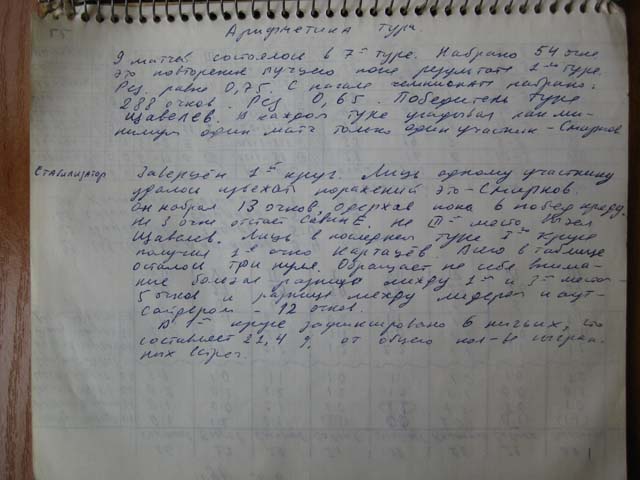 Арифметика тура.
9 матчей состоялось в 7-м туре. Набрано 54 очка
это повторение лучшего пока результата 1-го тура.
Рез. равна 0,75. С начала чемпионата набрано:
288 очков. Рез 0,65. Победитель тура
Щавелев. В каждом туре угадывал как ми-
нимум один матч только один участник - Смирнов
Стабилизатор
Завершён 1-й круг. Лишь одному участнику
удалось избежать поражений это - Смирнов.
Он набрал 13 очков, одержав пока 6 побед кряду.
На 3 очка отстаёт Савин Е. На III-м место
Щавелев. Лишь в последнем туре I-го круга
получил 1-е очко Карташёв. Всего в таблице
осталось три нуля. Обращает на себя внима-
ние большая разница между 1-м и местом
5 очков и разница между лидером и аут-
сайдером - 12 очков.
В 1-м круге зафиксировано 6 ничьих, что
составляет 21,4 % от общего кол-ва сыгран-
ных встреч.